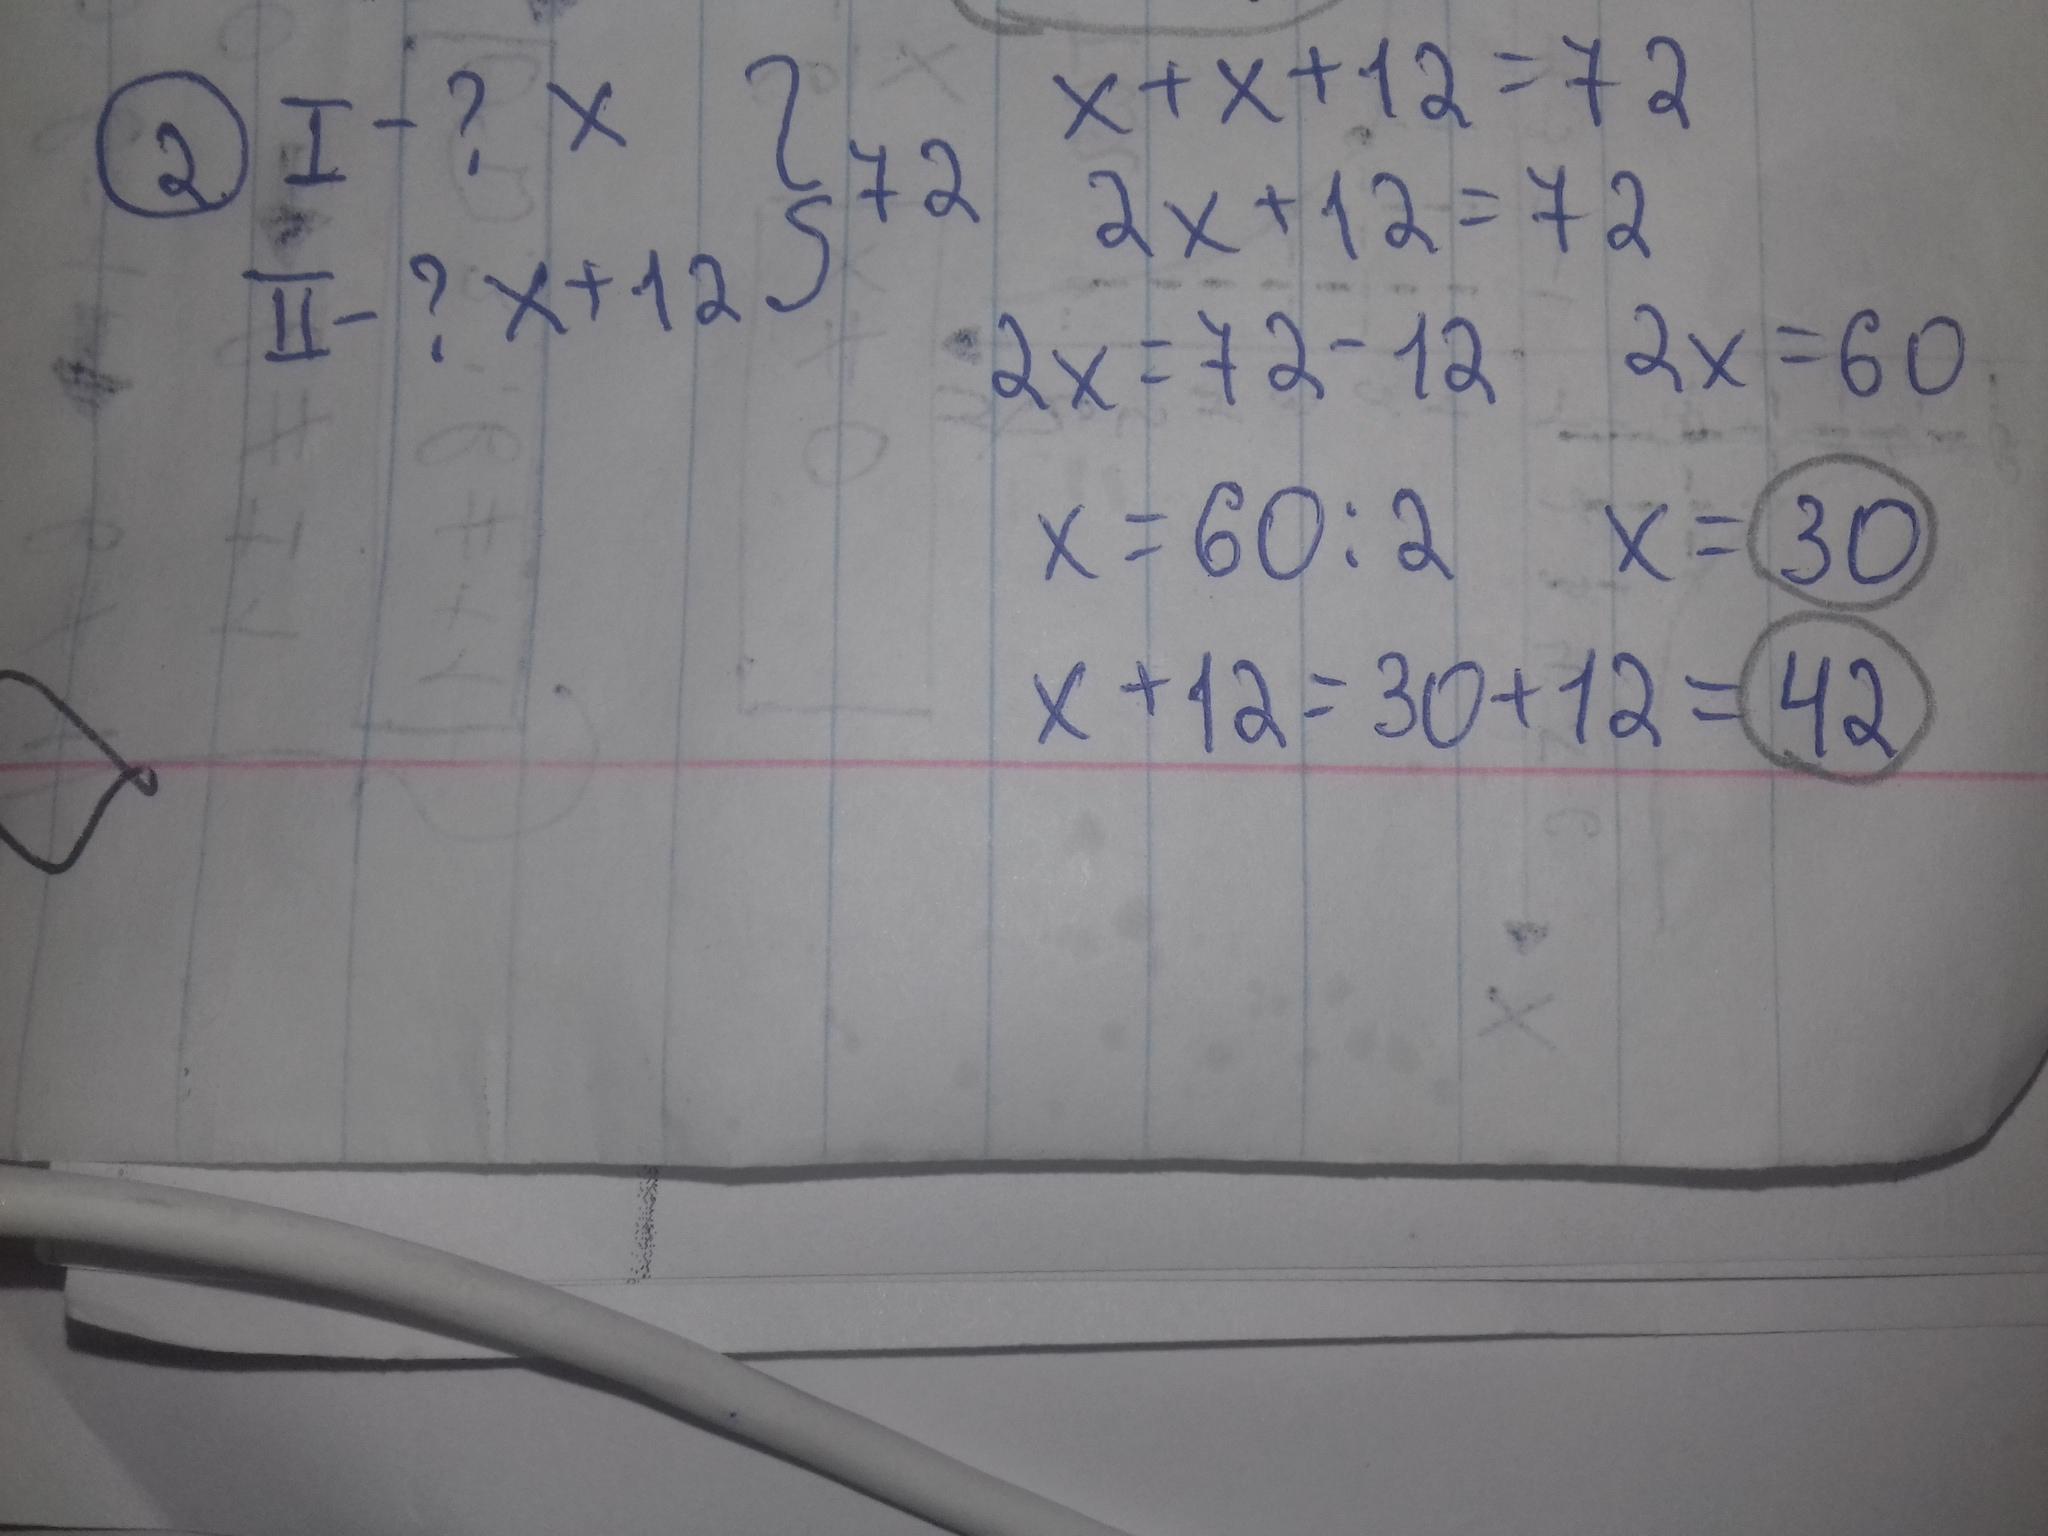 2 I - ? x } 72
II - ? x + 12
x + x + 12 = 72
2x + 12 = 72
2x = 72 - 12 2x = 60
x = 60 : 2 x = 30
x + 12 = 30 + 12 = 42